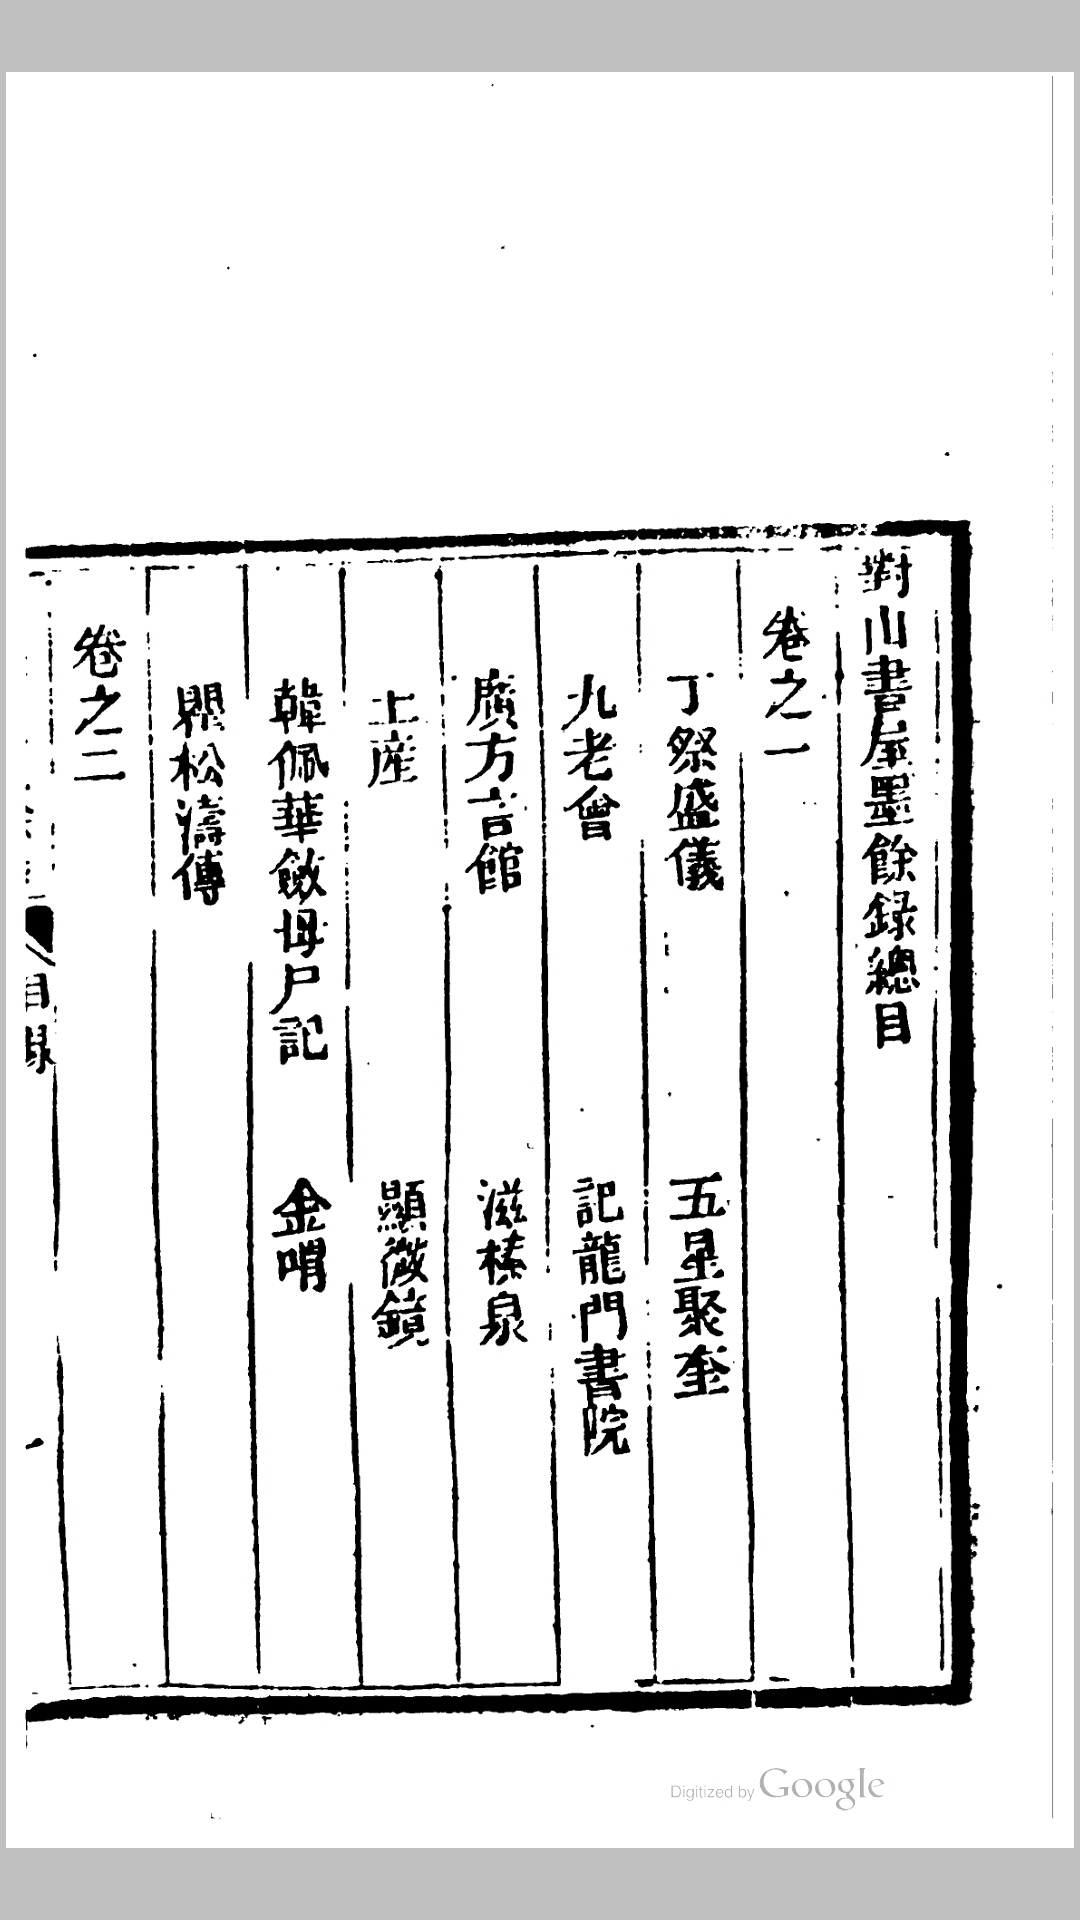 對山書屋墨餘錄總目
卷之一
丁祭盛儀 五星聚奎
九老會 記龍門書院
廣方言館 滋榛泉
土產 顯微鏡
韓佩華斂母尸記 金哨
瞿松濤傳
卷之二
目錄
Digitized by Google